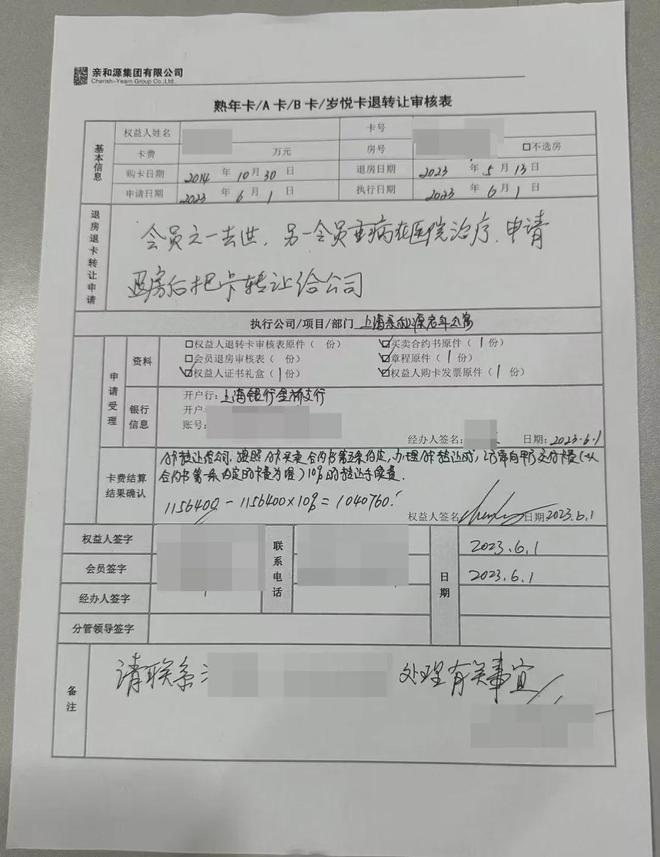 亲和源集团有限公司
Cherish-Yearn Group Co.,Ltd.
熟年卡/A 卡/B 卡/岁悦卡退转让审核表
基本信息
权益人姓名 卡号
卡费 万元 房号 □不选房
购卡日期 2014 年 10 月 30 日 退房日期 2023 年 5 月 13 日
申请日期 2023 年 6 月 1 日 执行日期 2023 年 6 月 1 日
退房退卡转让申请
会员之一去世,另一会员重病在医院治疗,申请
退房后把卡转让给公司
执行公司/项目/部门 上海亲和源老年公寓
申请受理
资料
□权益人退转卡审核表原件( 份) ☑买卖合约书原件(1份)
□会员退房审核表( 份) ☑章程原件(1份)
☑权益人证书礼盒(1份) ☑权益人购卡发票原件(1份)
银行信息
开户行:上海银行金桥支行
户名:
账号:
经办人签名: 日期:2023.6.1
卡费结算结果确认
A卡转让给公司,按照A卡买卖合约书第五条约定,办理A卡转让时,乙方需向甲方交付卡费(以
合约书第一条约定的卡费为准)10%的转让手续费.
1156400 - 1156400×10% = 1040760.
权益人签名 日期2023.6.1
权益人签字 联系电话 日期 2023.6.1
会员签字 2023.6.1
经办人签字
分管领导签字
备注
请联系 处理有关事宜